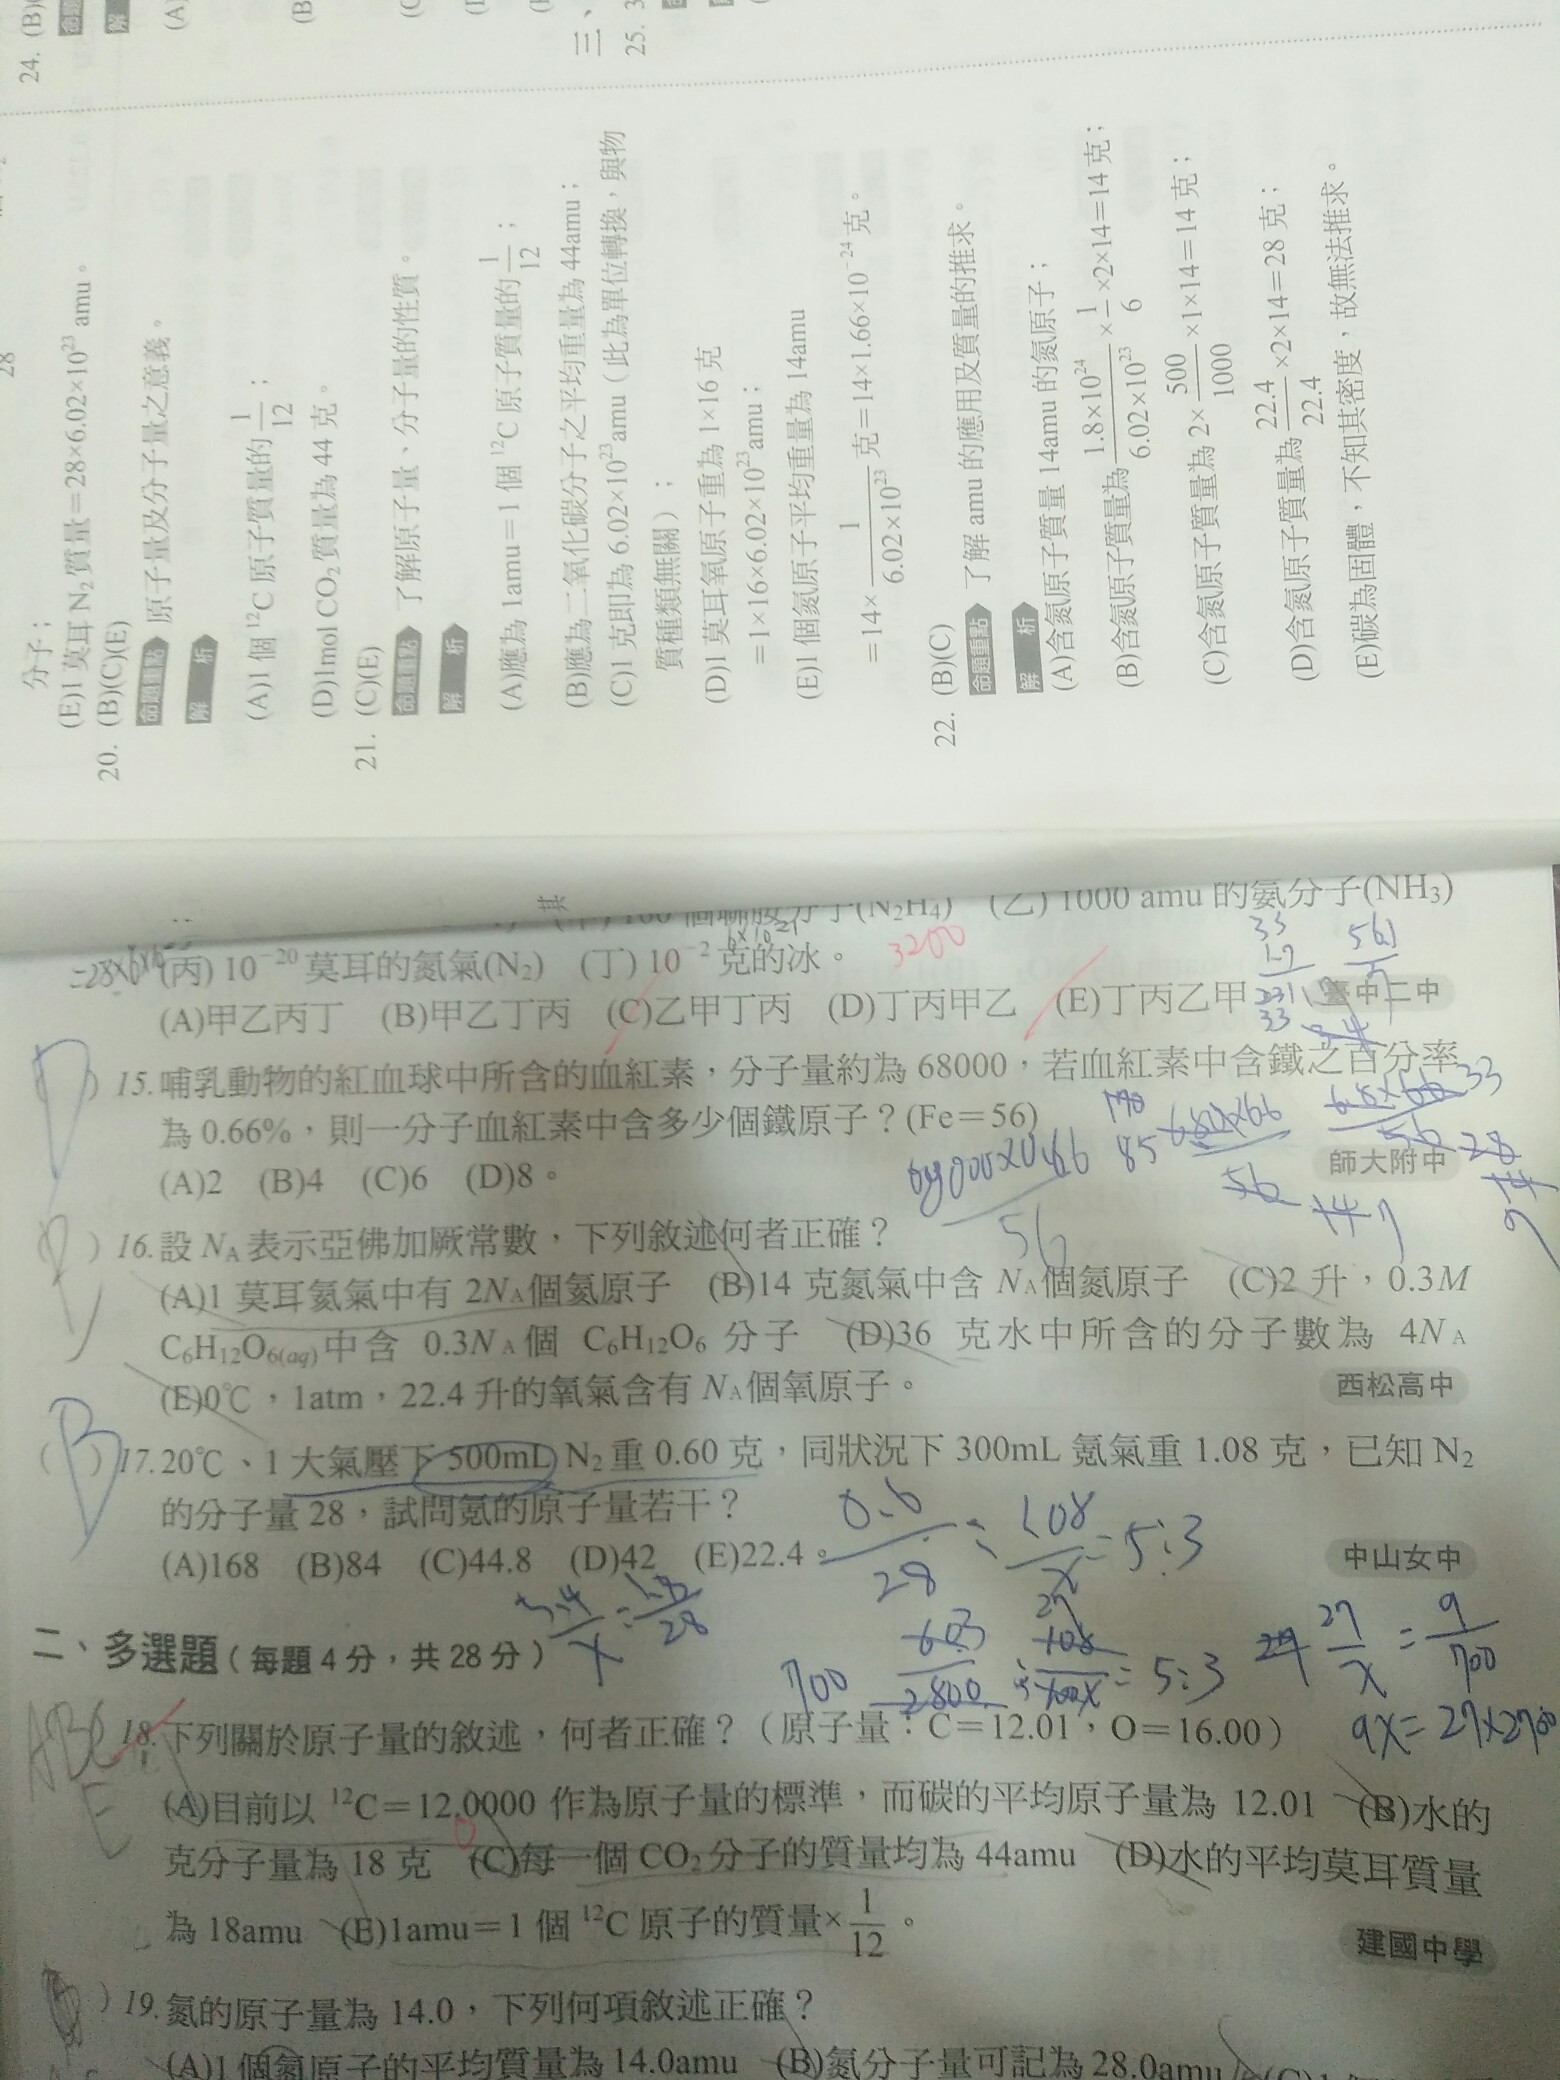 24. (B)
三、
25. 3
28
分子；
(E)1 莫耳 N₂ 質量＝28×6.02×10²³ amu。
20. (B)(C)(E)
命題重點 原子量及分子量之意義。
解 析
(A)1 個 ¹²C 原子質量的 1/12；
(D)1mol CO₂ 質量為 44 克。
21. (C)(E)
命題重點 了解原子量、分子量的性質。
解 析
(A)應為 1amu＝1 個 ¹²C 原子質量的 1/12；
(B)應為二氧化碳分子之平均重量為 44amu；
(C)1 克即為 6.02×10²³amu（此為單位轉換，與物
質種類無關）；
(D)1 莫耳氧原子重為 1×16 克
＝1×16×6.02×10²³amu；
(E)1 個氮原子平均重量為 14amu
＝14× 1/6.02×10²³ 克＝14×1.66×10⁻²⁴ 克。
22. (B)(C)
命題重點 了解 amu 的應用及質量的推求。
解 析
(A)含氮原子質量 14amu 的氮原子；
(B)含氮原子質量為 1.8×10²⁴/6.02×10²³ × 1/6 ×2×14＝14 克；
(C)含氮原子質量為 2× 500/1000 ×1×14＝14 克；
(D)含氮原子質量為 22.4/22.4 ×2×14＝28 克；
(E)碳為固體，不知其密度，故無法推求。
(甲) 100 個聯胺分子(N₂H₄) (乙) 1000 amu 的氨分子(NH₃)
(丙) 10⁻²⁰ 莫耳的氮氣(N₂) (丁) 10⁻² 克的冰。 3200
(A)甲乙丙丁 (B)甲乙丁丙 (C)乙甲丁丙 (D)丁丙甲乙 (E)丁丙乙甲 臺中二中
D ) 15. 哺乳動物的紅血球中所含的血紅素，分子量約為 68000，若血紅素中含鐵之百分率
為 0.66%，則一分子血紅素中含多少個鐵原子？(Fe＝56)
(A)2 (B)4 (C)6 (D)8。 師大附中
) 16. 設 NA 表示亞佛加厥常數，下列敘述何者正確？
(A)1 莫耳氦氣中有 2NA個氦原子 (B)14 克氮氣中含 NA個氮原子 (C)2 升，0.3M
C₆H₁₂O₆(aq)中含 0.3NA個 C₆H₁₂O₆ 分子 (D)36 克水中所含的分子數為 4NA
(E)0℃，1atm，22.4 升的氧氣含有 NA個氧原子。 西松高中
( B ) 17. 20℃、1 大氣壓下 500mL N₂ 重 0.60 克，同狀況下 300mL 氪氣重 1.08 克，已知 N₂
的分子量 28，試問氪的原子量若干？
(A)168 (B)84 (C)44.8 (D)42 (E)22.4。 中山女中
0.6/28 : 1.08/x = 5:3
二、多選題（每題 4 分，共 28 分）
700
= 5:3
27/x = 9/700
ABC
E
18. 下列關於原子量的敘述，何者正確？（原子量：C＝12.01，O＝16.00）
(A)目前以 ¹²C＝12.0000 作為原子量的標準，而碳的平均原子量為 12.01 (B)水的
克分子量為 18 克 (C)每一個 CO₂ 分子的質量均為 44amu (D)水的平均莫耳質量
為 18amu (E)1amu＝1 個 ¹²C 原子的質量× 1/12 。 建國中學
) 19. 氮的原子量為 14.0，下列何項敘述正確？
(A)1 個氮原子的平均質量為 14.0amu (B)氮分子量可記為 28.0amu (C)1